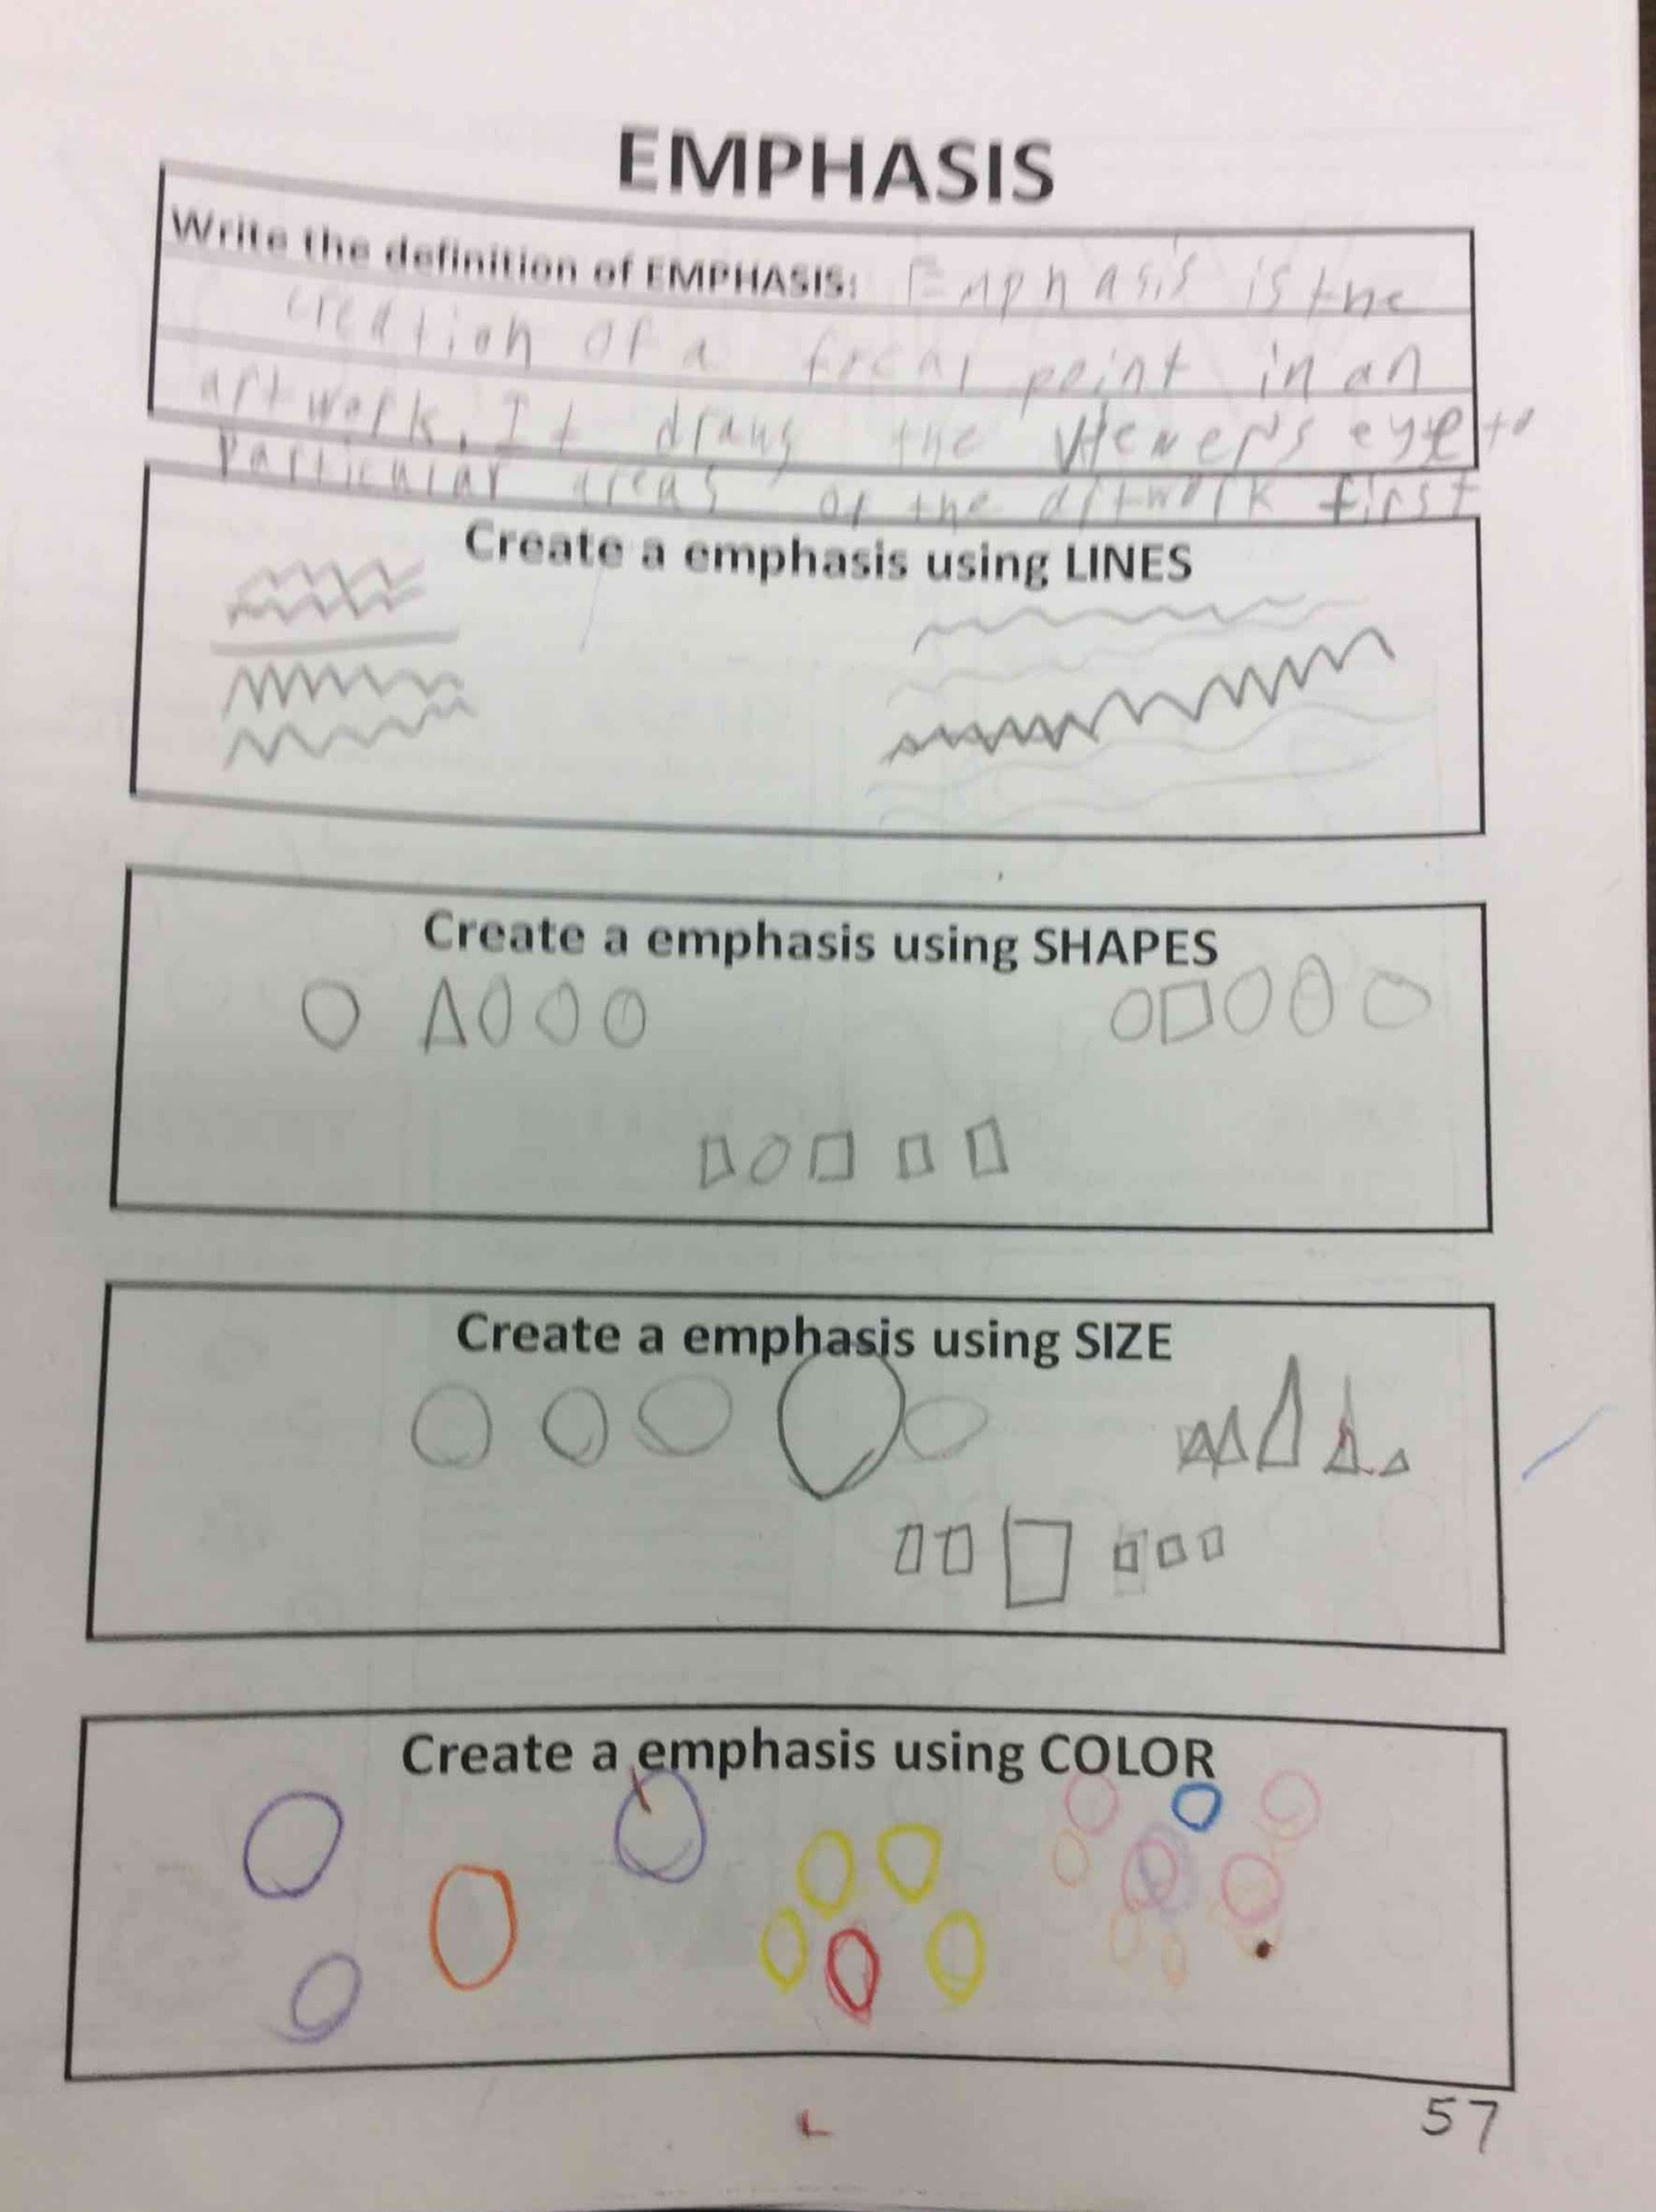 EMPHASIS
Write the definition of EMPHASIS: Emphasis is the
creation of a focal point in an
artwork. It draws the viewer's eye to
particular areas of the artwork first
Create a emphasis using LINES
Create a emphasis using SHAPES
Create a emphasis using SIZE
Create a emphasis using COLOR
57